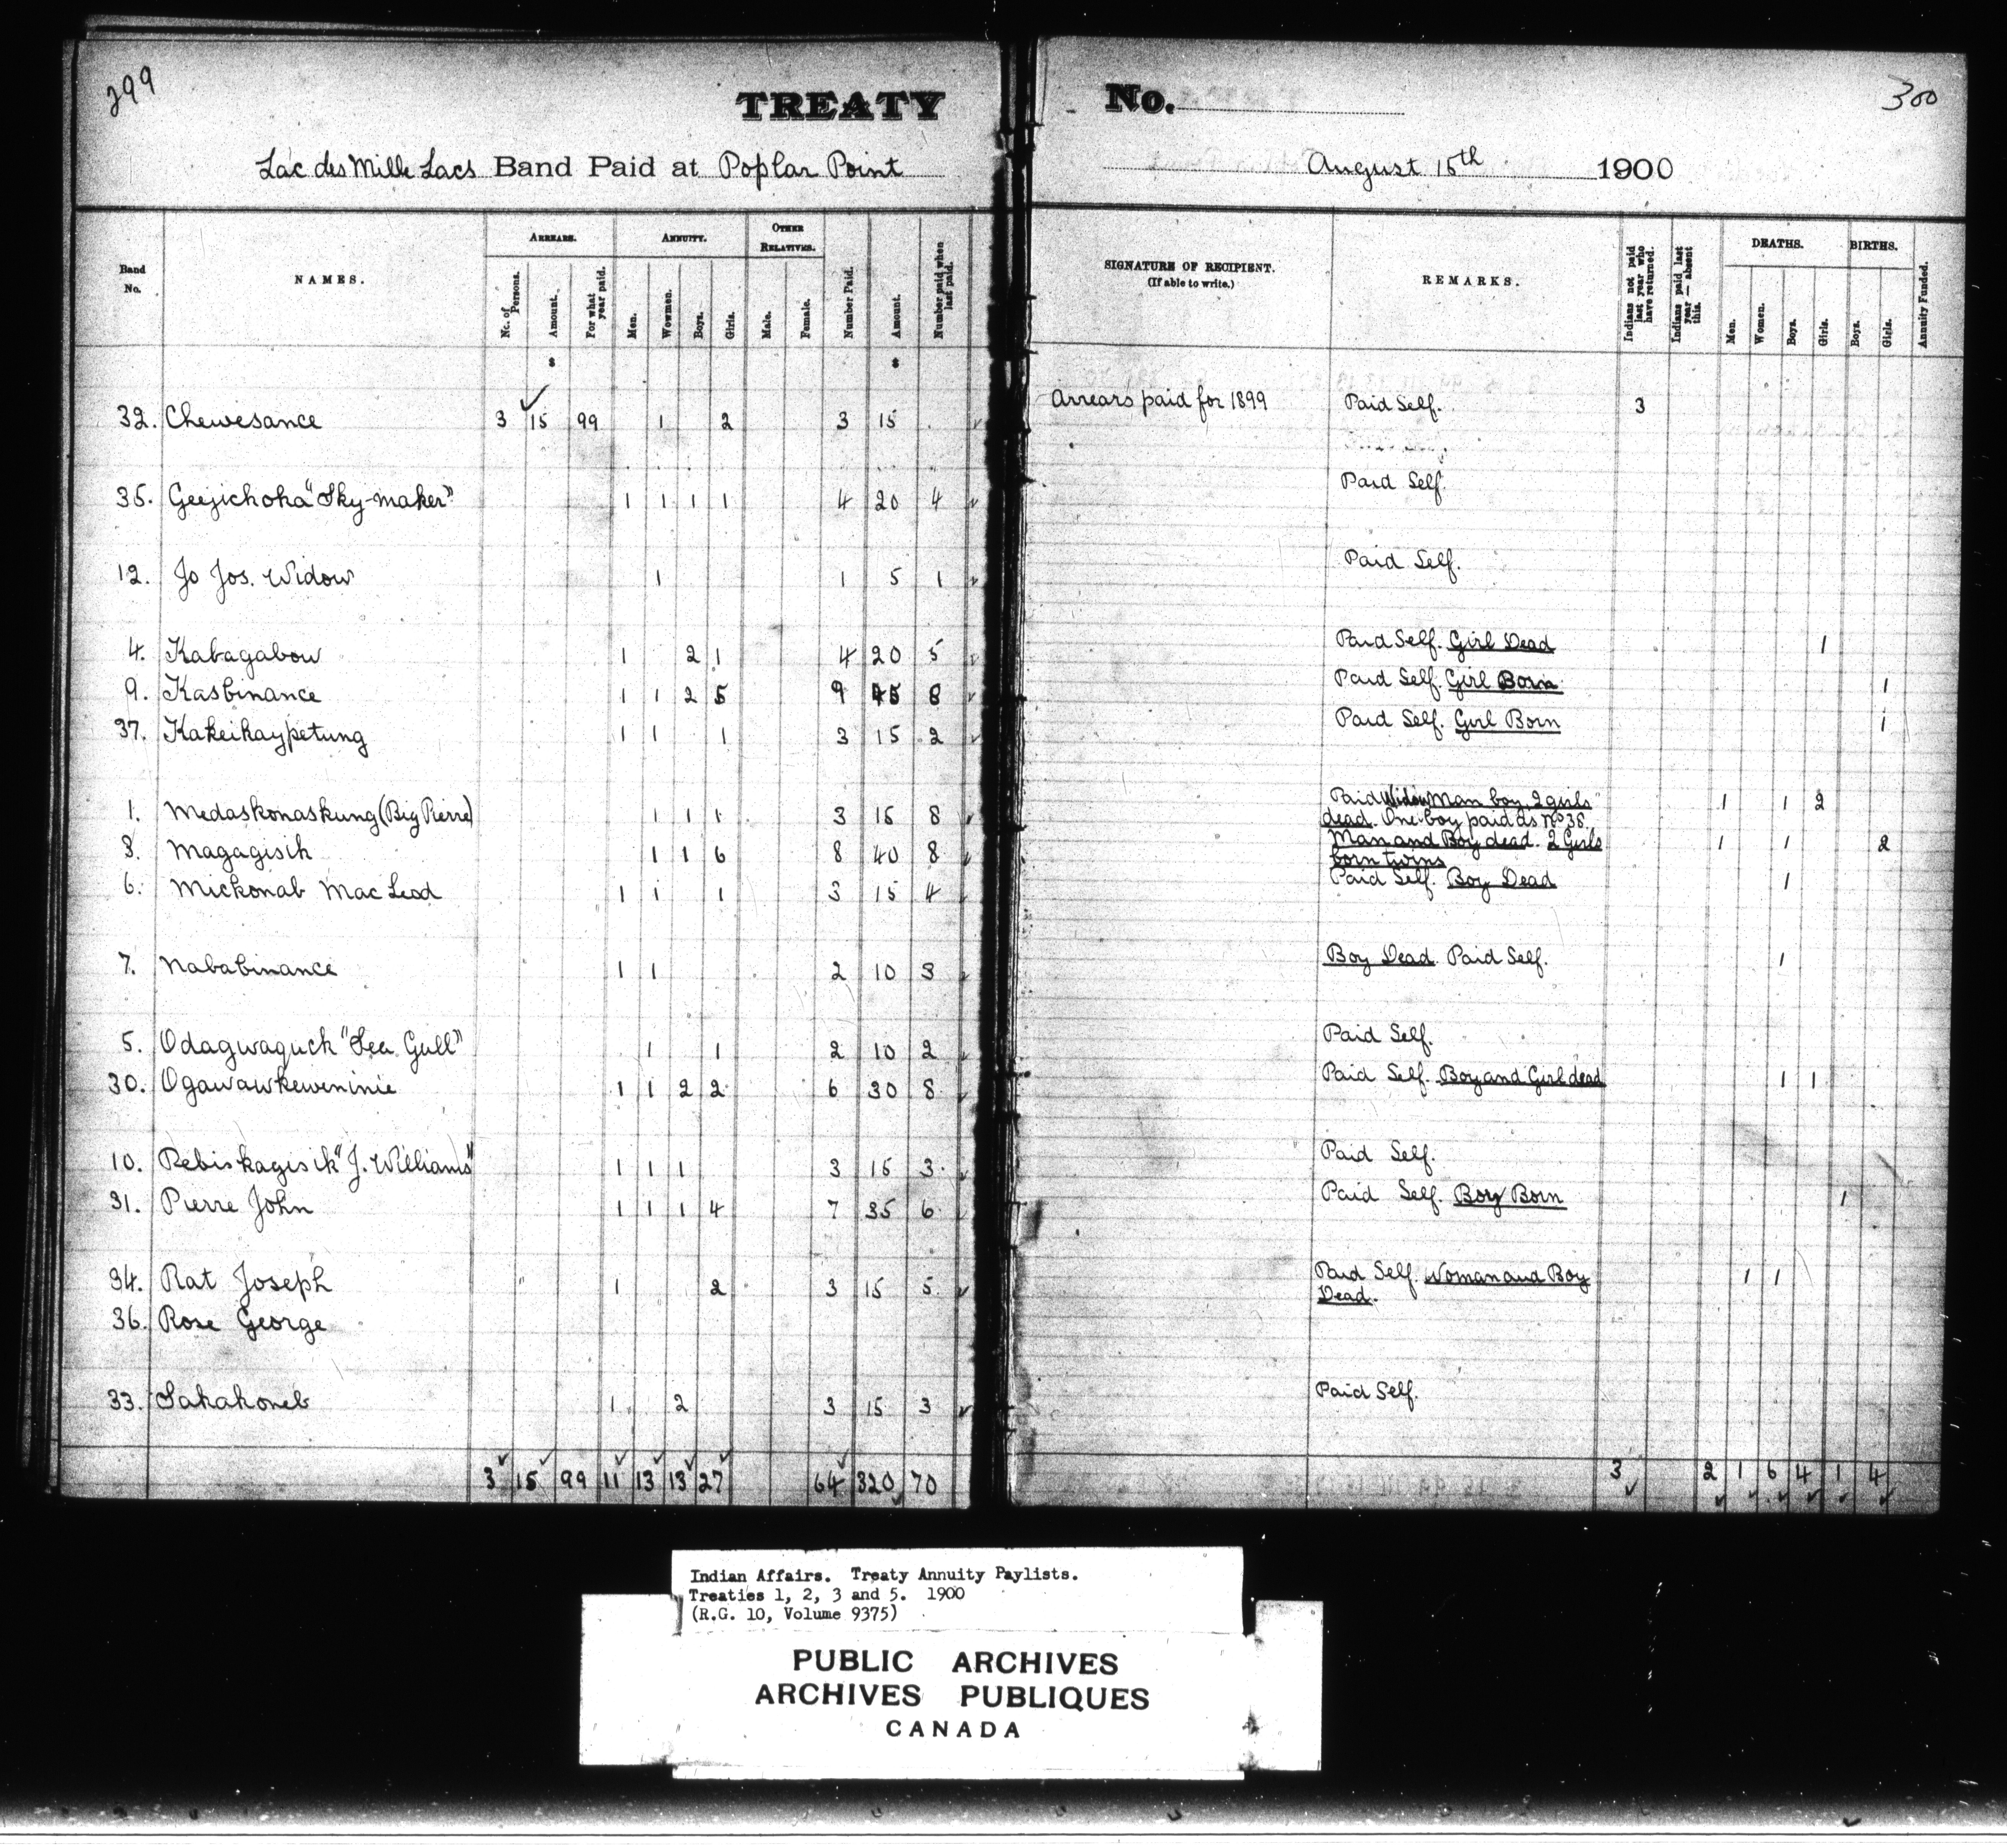 299
TREATY No.
300
Lac des Mille Lacs Band Paid at Poplar Point
August 15th 1900
Band No. NAMES. ARREARS. ANNUITY. OTHER RELATIVES. Number Paid. Amount. Number paid when last paid. SIGNATURE OF RECIPIENT. (If able to write.) REMARKS. Indians not paid last year who have returned. Indians paid last year — absent this. DEATHS. BIRTHS. Annuity Funded.
No. of Persons. Amount. For what year paid. Men. Wowmen. Boys. Girls. Male. Female. Men. Women. Boys. Girls. Boys. Girls.
$ $
32. Chewesance 3 15 99 1 2 3 15 Arrears paid for 1899 Paid Self. 3
35. Geejichoka "Sky-maker" 1 1 1 1 4 20 4 Paid Self.
12. Jo Jos. Widow 1 1 5 1 Paid Self.
4. Kabagabow 1 2 1 4 20 5 Paid Self. Girl Dead 1
9. Kasbinance 1 1 2 5 9 45 8 Paid Self. Girl Born 1
37. Kakeikaypetung 1 1 1 3 15 2 Paid Self. Girl Born 1
1. Medaskonaskung (Big Pierre) 1 1 1 3 15 8 Paid Widow Man boy, 2 girls 1 1 2
dead. One boy paid as No 38.
8. Magagisik 1 1 6 8 40 8 Man and Boy dead. 2 Girls 1 1 2
born twins
6. Mickonab Mac Leod 1 1 1 3 15 4 Paid Self. Boy Dead 1
7. Nababinance 1 1 2 10 3 Boy Dead. Paid Self. 1
5. Odagwaguck "Sea Gull" 1 1 2 10 2 Paid Self.
30. Ogawawkeweninie 1 1 2 2 6 30 8 Paid Self. Boy and Girl dead 1 1
10. Pebiskagisik "J. Williams" 1 1 1 3 15 3 Paid Self.
31. Pierre John 1 1 1 4 7 35 6 Paid Self. Boy Born 1
34. Rat Joseph 1 2 3 15 5 Paid Self. Woman and Boy 1 1
Dead.
36. Rose George
33. Sakakoneb 1 2 3 15 3 Paid Self.
3 15 99 11 13 13 27 64 320 70 3 2 1 6 4 1 4
Indian Affairs. Treaty Annuity Paylists.
Treaties 1, 2, 3 and 5. 1900
(R.G. 10, Volume 9375)
PUBLIC ARCHIVES
ARCHIVES PUBLIQUES
CANADA